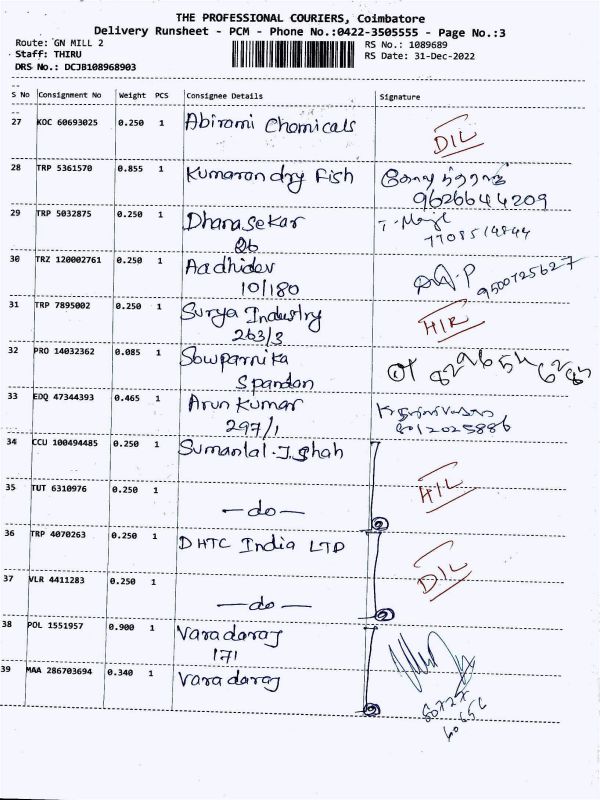 THE PROFESSIONAL COURIERS, Coimbatore
Delivery Runsheet - PCM - Phone No.:0422-3505555 - Page No.:3
Route: GN MILL 2
RS No.: 1089689
Staff: THIRU
RS Date: 31-Dec-2022
DRS No.: DCJB108968903
S No Consignment No Weight PCS Consignee Details Signature
27 KOC 60693025 0.250 1 Abirami Chemicals
DIL
28 TRP 5361570 0.855 1 Kumaran dry Fish
9626644209
29 TRP 5032875 0.250 1 Dhanasekar
26
7708514844
30 TRZ 120002761 0.250 1 Aadhidev
10/180
9500725627
31 TRP 7895002 0.250 1 Surya Industry
263/3
HIR
32 PRO 14032362 0.085 1 Sowparnika
Spandan
33 EDQ 47344393 0.465 1 Arun Kumar
297/1
8012025886
34 CCU 100494485 0.250 1 Sumanlal.J.Shah
HIL
35 TUT 6310976 0.250 1
-do-
36 TRP 4070263 0.250 1 DHTC India LTD
DIL
37 VLR 4411283 0.250 1
-do-
38 POL 1551957 0.900 1 Varadaraj
171
39 MAA 286703694 0.340 1 Varadaraj